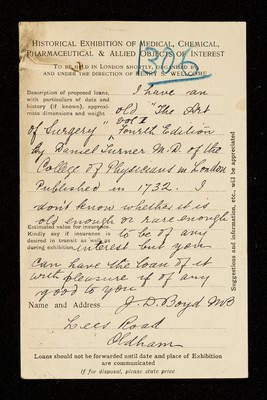 306
HISTORICAL EXHIBITION OF MEDICAL, CHEMICAL,
PHARMACEUTICAL & ALLIED OBJECTS OF INTEREST
TO BE HELD IN LONDON SHORTLY, ORGANISED BY
AND UNDER THE DIRECTION OF HENRY S. WELLCOME
Description of proposed loans, with particulars of date and history (if known), approximate dimensions and weight
I have an
old "The Art
vol I
of Surgery" Fourth Edition
by Daniel Turner M.D. of the
College of Physicians in London
Published in 1732. I
don't know whether it is
old enough or rare enough
Estimated value for insurance. Kindly say if insurance is desired in transit as well as during exhibition
to be of any
interest but you
can have the loan of it
with pleasure if of any
good to you
Name and Address J. D. Boyd MB
Lees Road
Oldham
Loans should not be forwarded until date and place of Exhibition
are communicated
If for disposal, please state price
Suggestions and information, etc., will be appreciated